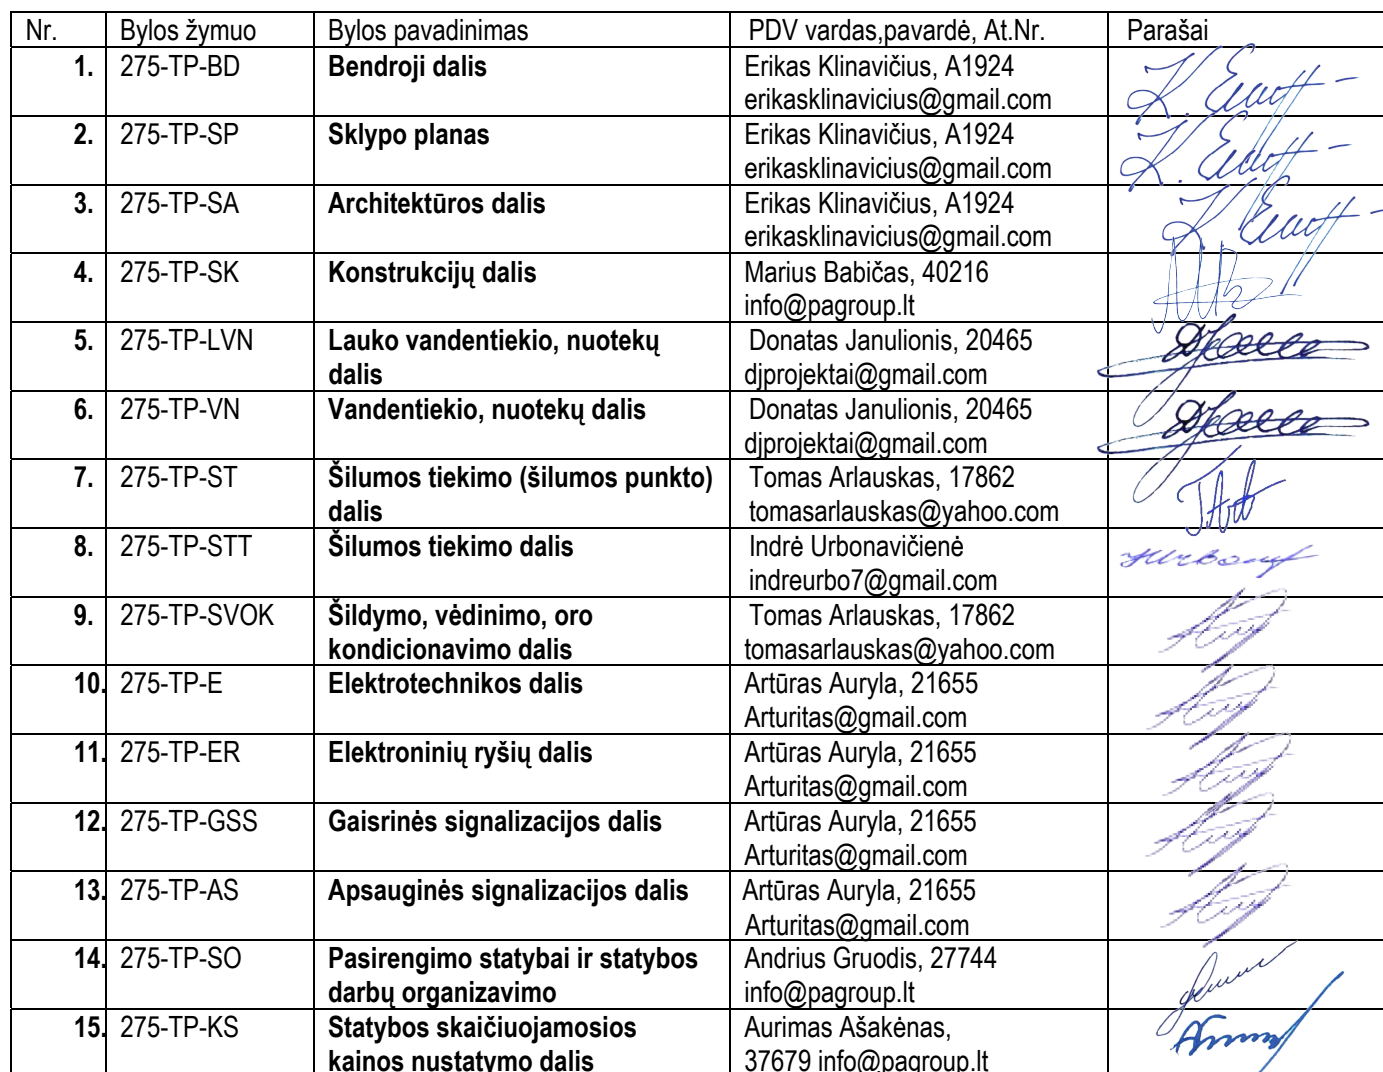 Nr. Bylos žymuo Bylos pavadinimas PDV vardas,pavardė, At.Nr. Parašai
1. 275-TP-BD Bendroji dalis Erikas Klinavičius, A1924
erikasklinavicius@gmail.com
2. 275-TP-SP Sklypo planas Erikas Klinavičius, A1924
erikasklinavicius@gmail.com
3. 275-TP-SA Architektūros dalis Erikas Klinavičius, A1924
erikasklinavicius@gmail.com
4. 275-TP-SK Konstrukcijų dalis Marius Babičas, 40216
info@pagroup.lt
5. 275-TP-LVN Lauko vandentiekio, nuotekų Donatas Janulionis, 20465
dalis djprojektai@gmail.com
6. 275-TP-VN Vandentiekio, nuotekų dalis Donatas Janulionis, 20465
djprojektai@gmail.com
7. 275-TP-ST Šilumos tiekimo (šilumos punkto) Tomas Arlauskas, 17862
dalis tomasarlauskas@yahoo.com
8. 275-TP-STT Šilumos tiekimo dalis Indrė Urbonavičienė
indreurbo7@gmail.com
9. 275-TP-SVOK Šildymo, vėdinimo, oro Tomas Arlauskas, 17862
kondicionavimo dalis tomasarlauskas@yahoo.com
10. 275-TP-E Elektrotechnikos dalis Artūras Auryla, 21655
Arturitas@gmail.com
11. 275-TP-ER Elektroninių ryšių dalis Artūras Auryla, 21655
Arturitas@gmail.com
12. 275-TP-GSS Gaisrinės signalizacijos dalis Artūras Auryla, 21655
Arturitas@gmail.com
13. 275-TP-AS Apsauginės signalizacijos dalis Artūras Auryla, 21655
Arturitas@gmail.com
14. 275-TP-SO Pasirengimo statybai ir statybos Andrius Gruodis, 27744
darbų organizavimo info@pagroup.lt
15. 275-TP-KS Statybos skaičiuojamosios Aurimas Ašakėnas,
kainos nustatymo dalis 37679 info@pagroup.lt